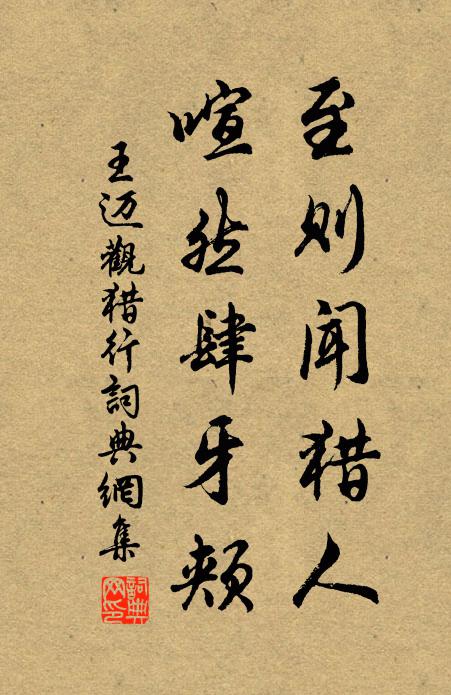 至则闻猎人
喧然肆牙颊
王迈觀猎行詞典網集
詞典网印